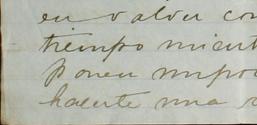 en valor con
tiempo mient
ponen impo
hacerte una